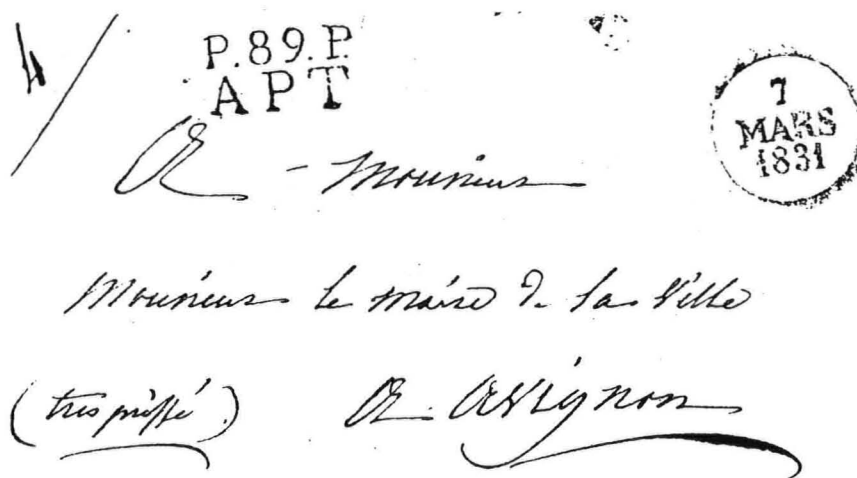 P.89.P.
APT
7
MARS
1831
A - Monsieur
Monsieur le maire de la Ville
(très pressé) A Avignon